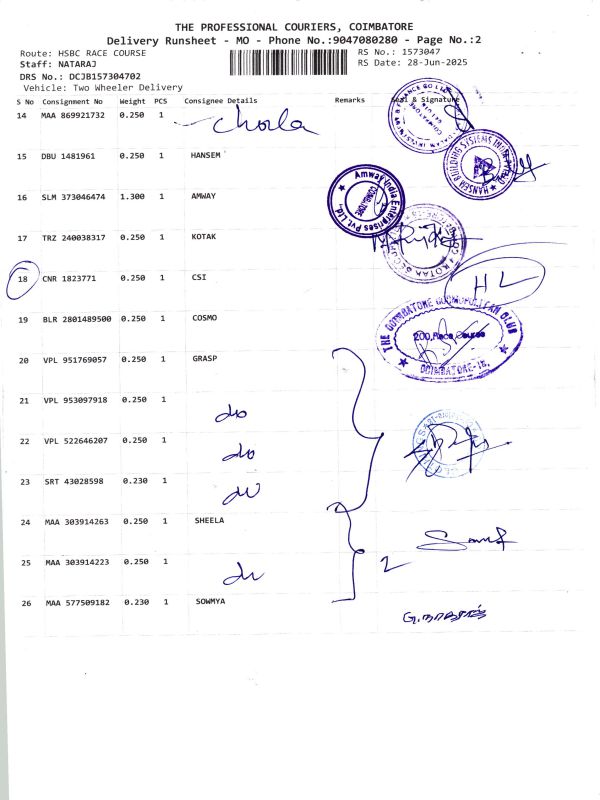 THE PROFESSIONAL COURIERS, COIMBATORE
Delivery Runsheet - MO - Phone No.:9047080280 - Page No.:2
Route: HSBC RACE COURSE
RS No.: 1573047
Staff: NATARAJ
RS Date: 28-Jun-2025
DRS No.: DCJB157304702
Vehicle: Two Wheeler Delivery
S No Consignment No Weight PCS Consignee Details Remarks Seal & Signature
14 MAA 869921732 0.250 1 Chola
15 DBU 1481961 0.250 1 HANSEM
HANSEM BUILDING SYSTEMS
16 SLM 373046474 1.300 1 AMWAY
Amway India Enterprises Pvt. Ltd.
COIMBATORE
17 TRZ 240038317 0.250 1 KOTAK
18 CNR 1823771 0.250 1 CSI
H L
19 BLR 2801489500 0.250 1 COSMO
THE COIMBATORE COSMOPOLITAN CLUB
200, Race Course
COIMBATORE-18.
20 VPL 951769057 0.250 1 GRASP
21 VPL 953097918 0.250 1 do
22 VPL 522646207 0.250 1 do
23 SRT 43028598 0.230 1 do
24 MAA 303914263 0.250 1 SHEELA
25 MAA 303914223 0.250 1 do 2
26 MAA 577509182 0.230 1 SOWMYA